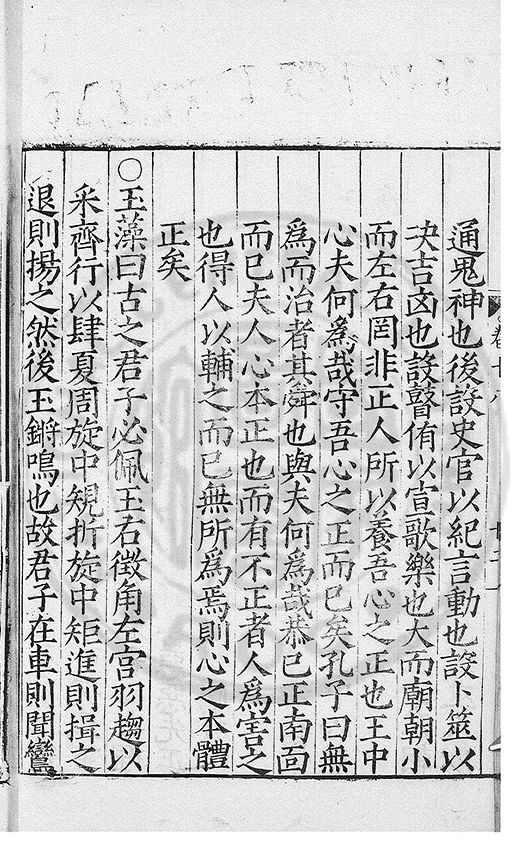 通鬼神也後設史官以紀言動也設卜筮以
决吉凶也設瞽侑以宣歌樂也大而廟朝小
而左右罔非正人所以養吾心之正也王中
心夫何爲哉守吾心之正而已矣孔子曰無
爲而治者其舜也與夫何爲哉恭已正南面
而已夫人心本正也而有不正者人爲害之
也得人以輔之而已無所爲焉則心之本體
正矣
○玉藻曰古之君子必佩玉右徵角左宮羽趨以
采齊行以肆夏周旋中規折旋中矩進則揖之
退則揚之然後玉鏘鳴也故君子在車則聞鸞